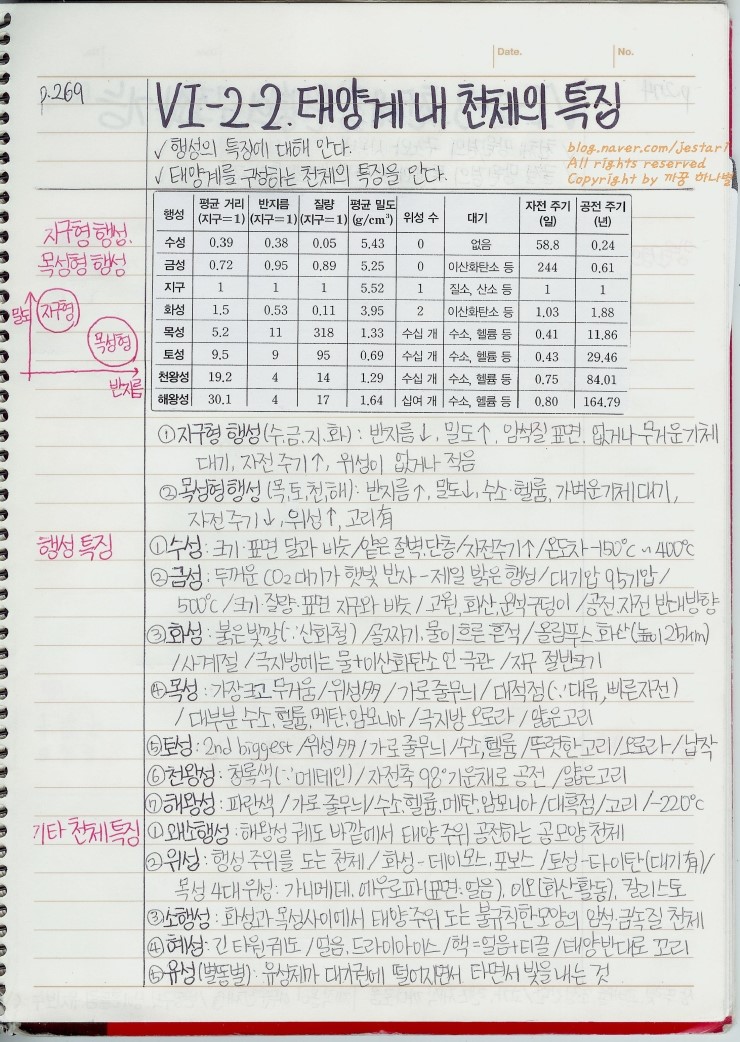 Date.
No.
p.269
VI-2-2. 태양계 내 천체의 특징
✓ 행성의 특징에 대해 안다.
✓ 태양계를 구성하는 천체의 특징을 안다.
blog.naver.com/jestari
All rights reserved
Copyright by 까꿍 하나별
지구형 행성.
목성형 행성
밀도
지구형
목성형
반지름
행성 평균 거리 (지구=1) 반지름 (지구=1) 질량 (지구=1) 평균 밀도 (g/cm³) 위성 수 대기 자전 주기 (일) 공전 주기 (년)
수성 0.39 0.38 0.05 5.43 0 없음 58.8 0.24
금성 0.72 0.95 0.89 5.25 0 이산화탄소 등 244 0.61
지구 1 1 1 5.52 1 질소, 산소 등 1 1
화성 1.5 0.53 0.11 3.95 2 이산화탄소 등 1.03 1.88
목성 5.2 11 318 1.33 수십 개 수소, 헬륨 등 0.41 11.86
토성 9.5 9 95 0.69 수십 개 수소, 헬륨 등 0.43 29.46
천왕성 19.2 4 14 1.29 수십 개 수소, 헬륨 등 0.75 84.01
해왕성 30.1 4 17 1.64 십여 개 수소, 헬륨 등 0.80 164.79
① 지구형 행성(수.금.지.화) : 반지름↓, 밀도↑, 암석질 표면, 없거나 무거운 기체
대기, 자전주기↑, 위성이 없거나 적음
② 목성형행성(목,토,천,해) : 반지름↑, 밀도↓, 수소·헬륨, 가벼운기체 대기,
자전주기↓, 위성↑, 고리有
행성 특징
① 수성 : 크기·표면 달과 비슷/얕은 절벽,단층/자전주기↑/온도차 -150℃~400℃
② 금성 : 두꺼운 CO2 대기가 햇빛 반사 - 제일 밝은 행성/대기압 95기압/
500℃/크기·질량·표면 지구와 비슷/고원,화산,운석구덩이/공전,자전 반대방향
③ 화성 : 붉은 빛깔(∵산화철)/골짜기, 물이 흐른 흔적/올림푸스 화산(높이 25km)
/사계절/극지방에는 물+이산화탄소 언 극관/지구 절반크기
④ 목성 : 가장크고 무거움/위성多/가로 줄무늬/대적점(∵대류, 빠른자전)
/대부분 수소,헬륨,메탄,암모니아/극지방 오로라/얇은고리
⑤ 토성 : 2nd biggest/위성多/가로줄무늬/수소,헬륨/뚜렷한고리/오로라/납작
⑥ 천왕성 : 청록색(∵메테인)/자전축 98°기운채로 공전/얇은고리
⑦ 해왕성 : 파란색/가로줄무늬/수소,헬륨,메탄,암모니아/대흑점/고리/-220℃
기타 천체 특징
① 왜소행성 : 해왕성 궤도 바깥에서 태양주위 공전하는 공모양 천체
② 위성 : 행성주위를 도는 천체/화성-데이모스.포보스/토성-타이탄(대기有)/
목성 4대 위성 : 가니메데, 에우로파(표면:얼음), 이오(화산활동), 칼리스토
③ 소행성 : 화성과 목성사이에서 태양주위 도는 불규칙한모양의 암석·금속질 천체
④ 혜성 : 긴 타원 궤도/얼음,드라이아이스/핵=얼음+티끌/태양반대로 꼬리
⑤ 유성(별똥별) : 유성체가 대기권에 떨어지면서 타면서 빛을 내는 것